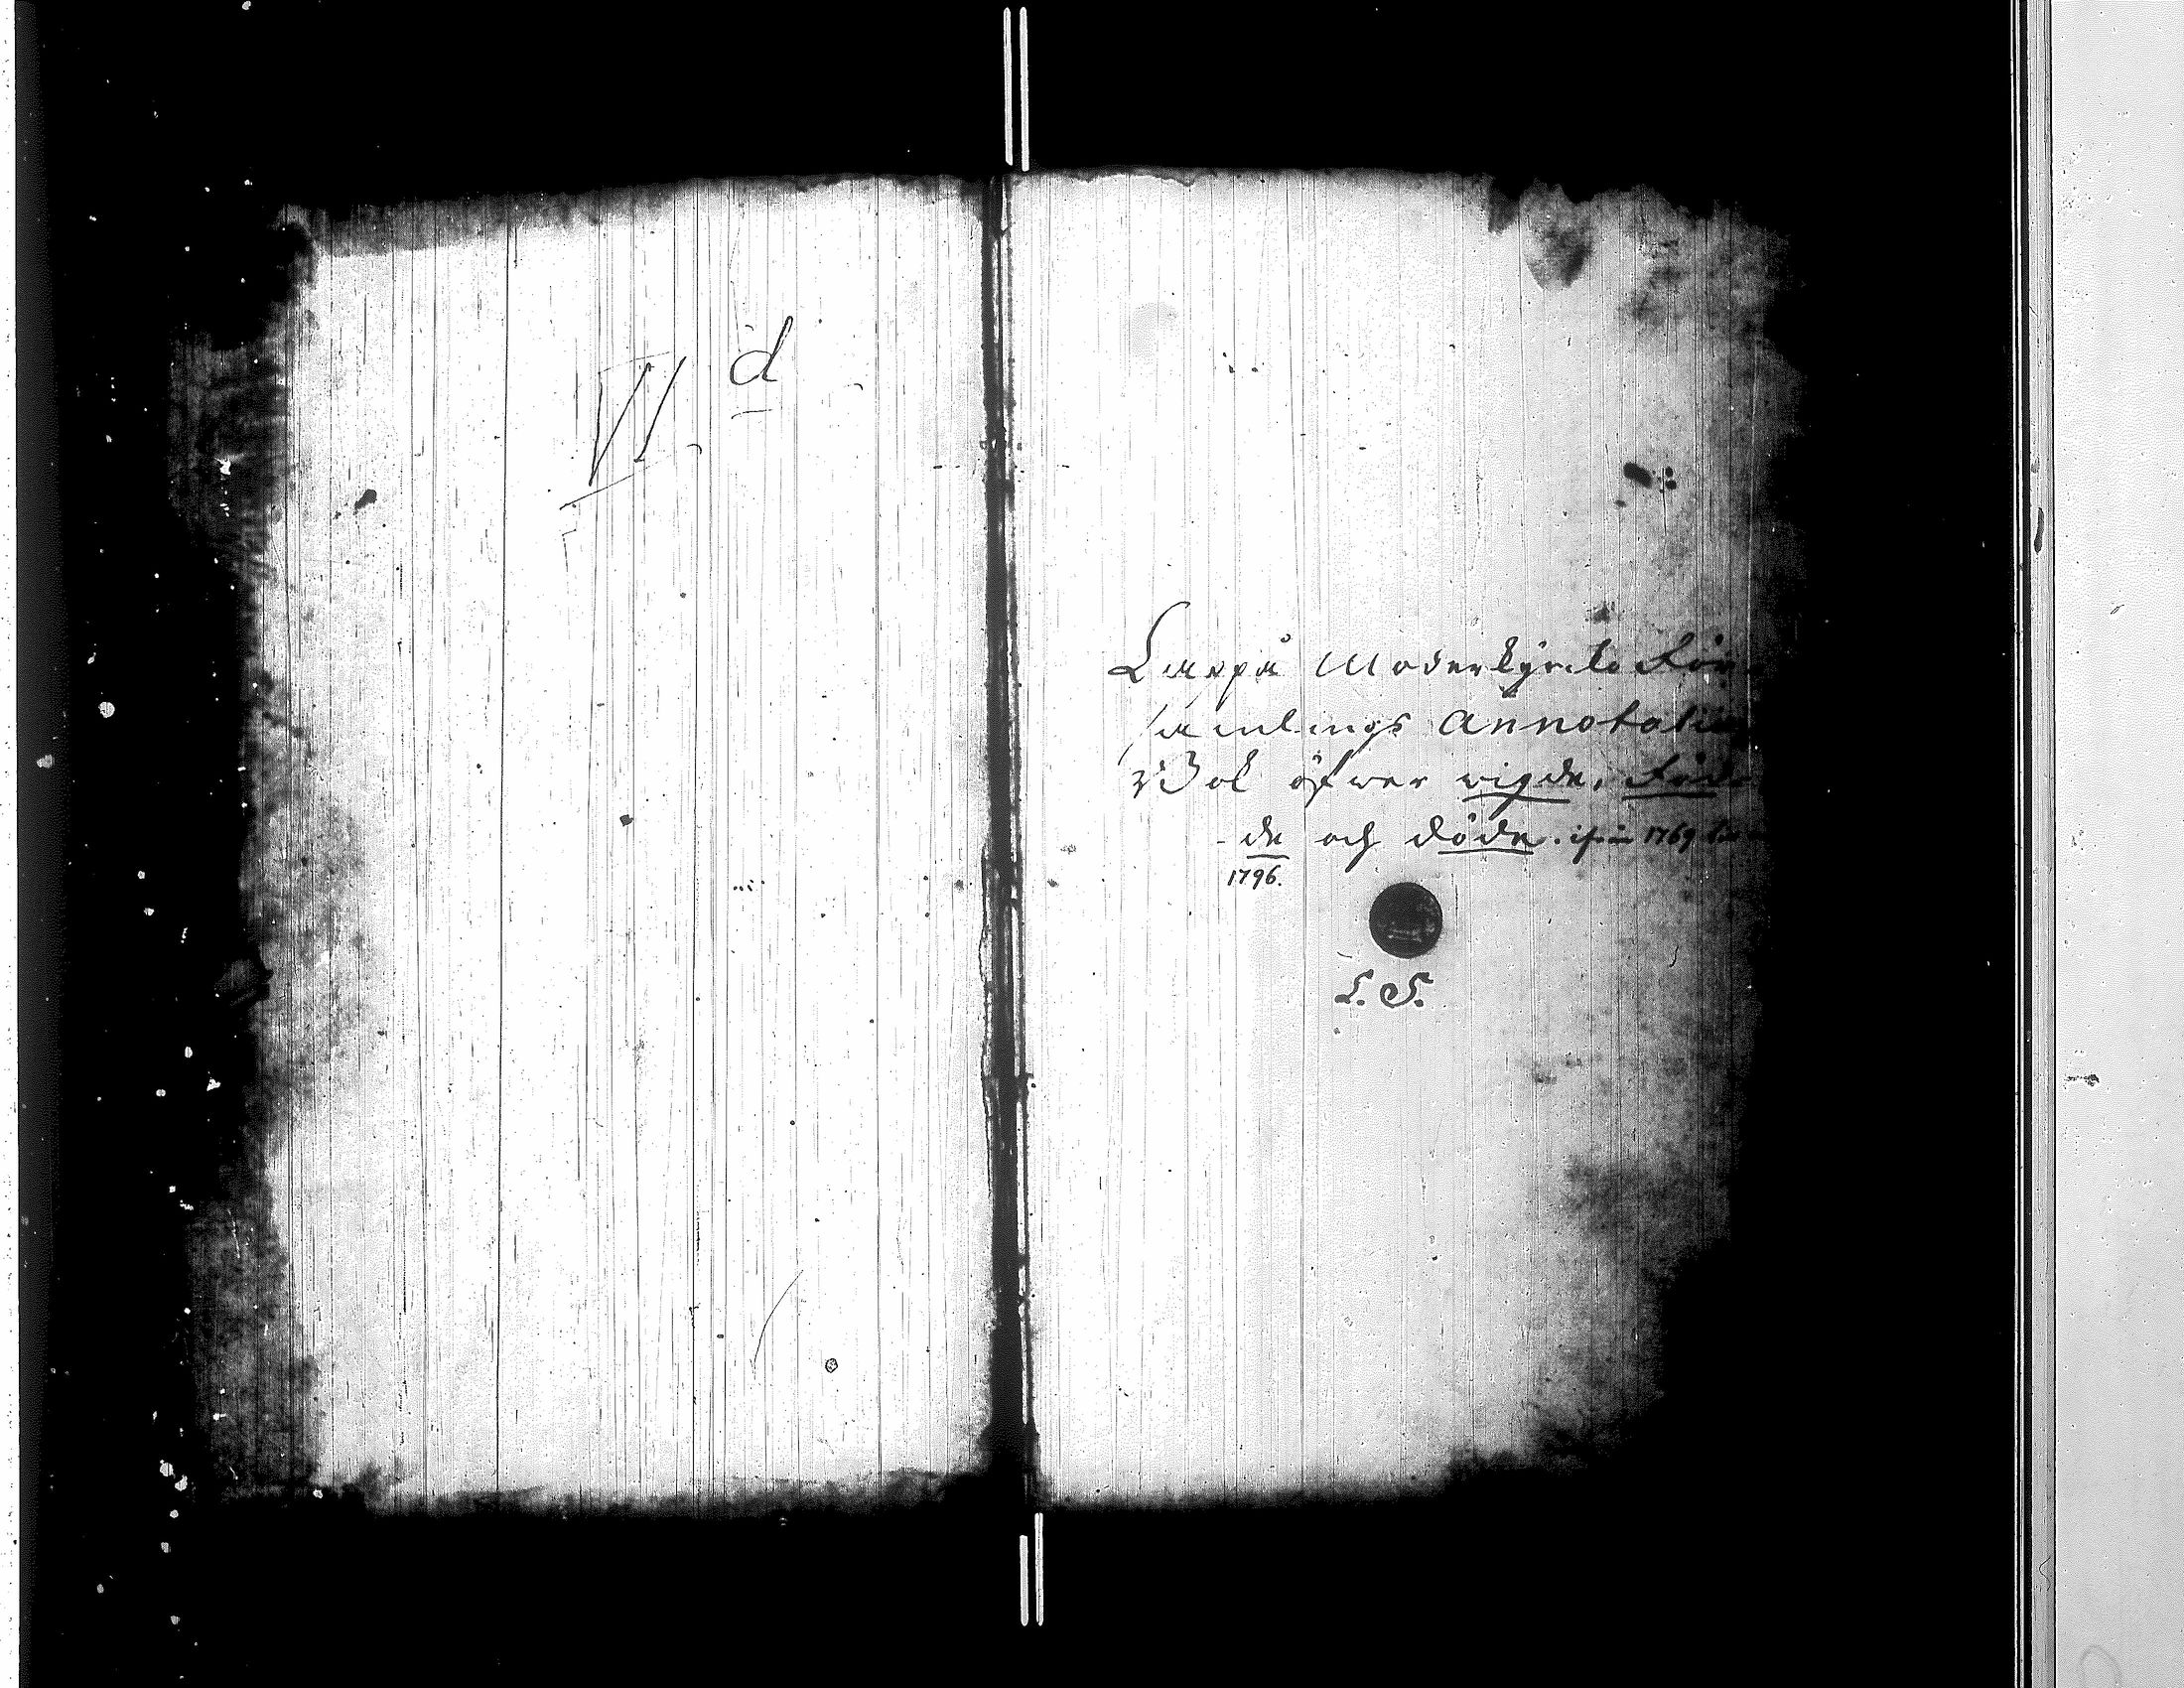 VI. d
Laspå Moderkyrko För
samlings Annotatio
Bok öfwer vigde, Föd
de och döde. ifrån 1769 til
1796.
L. S.